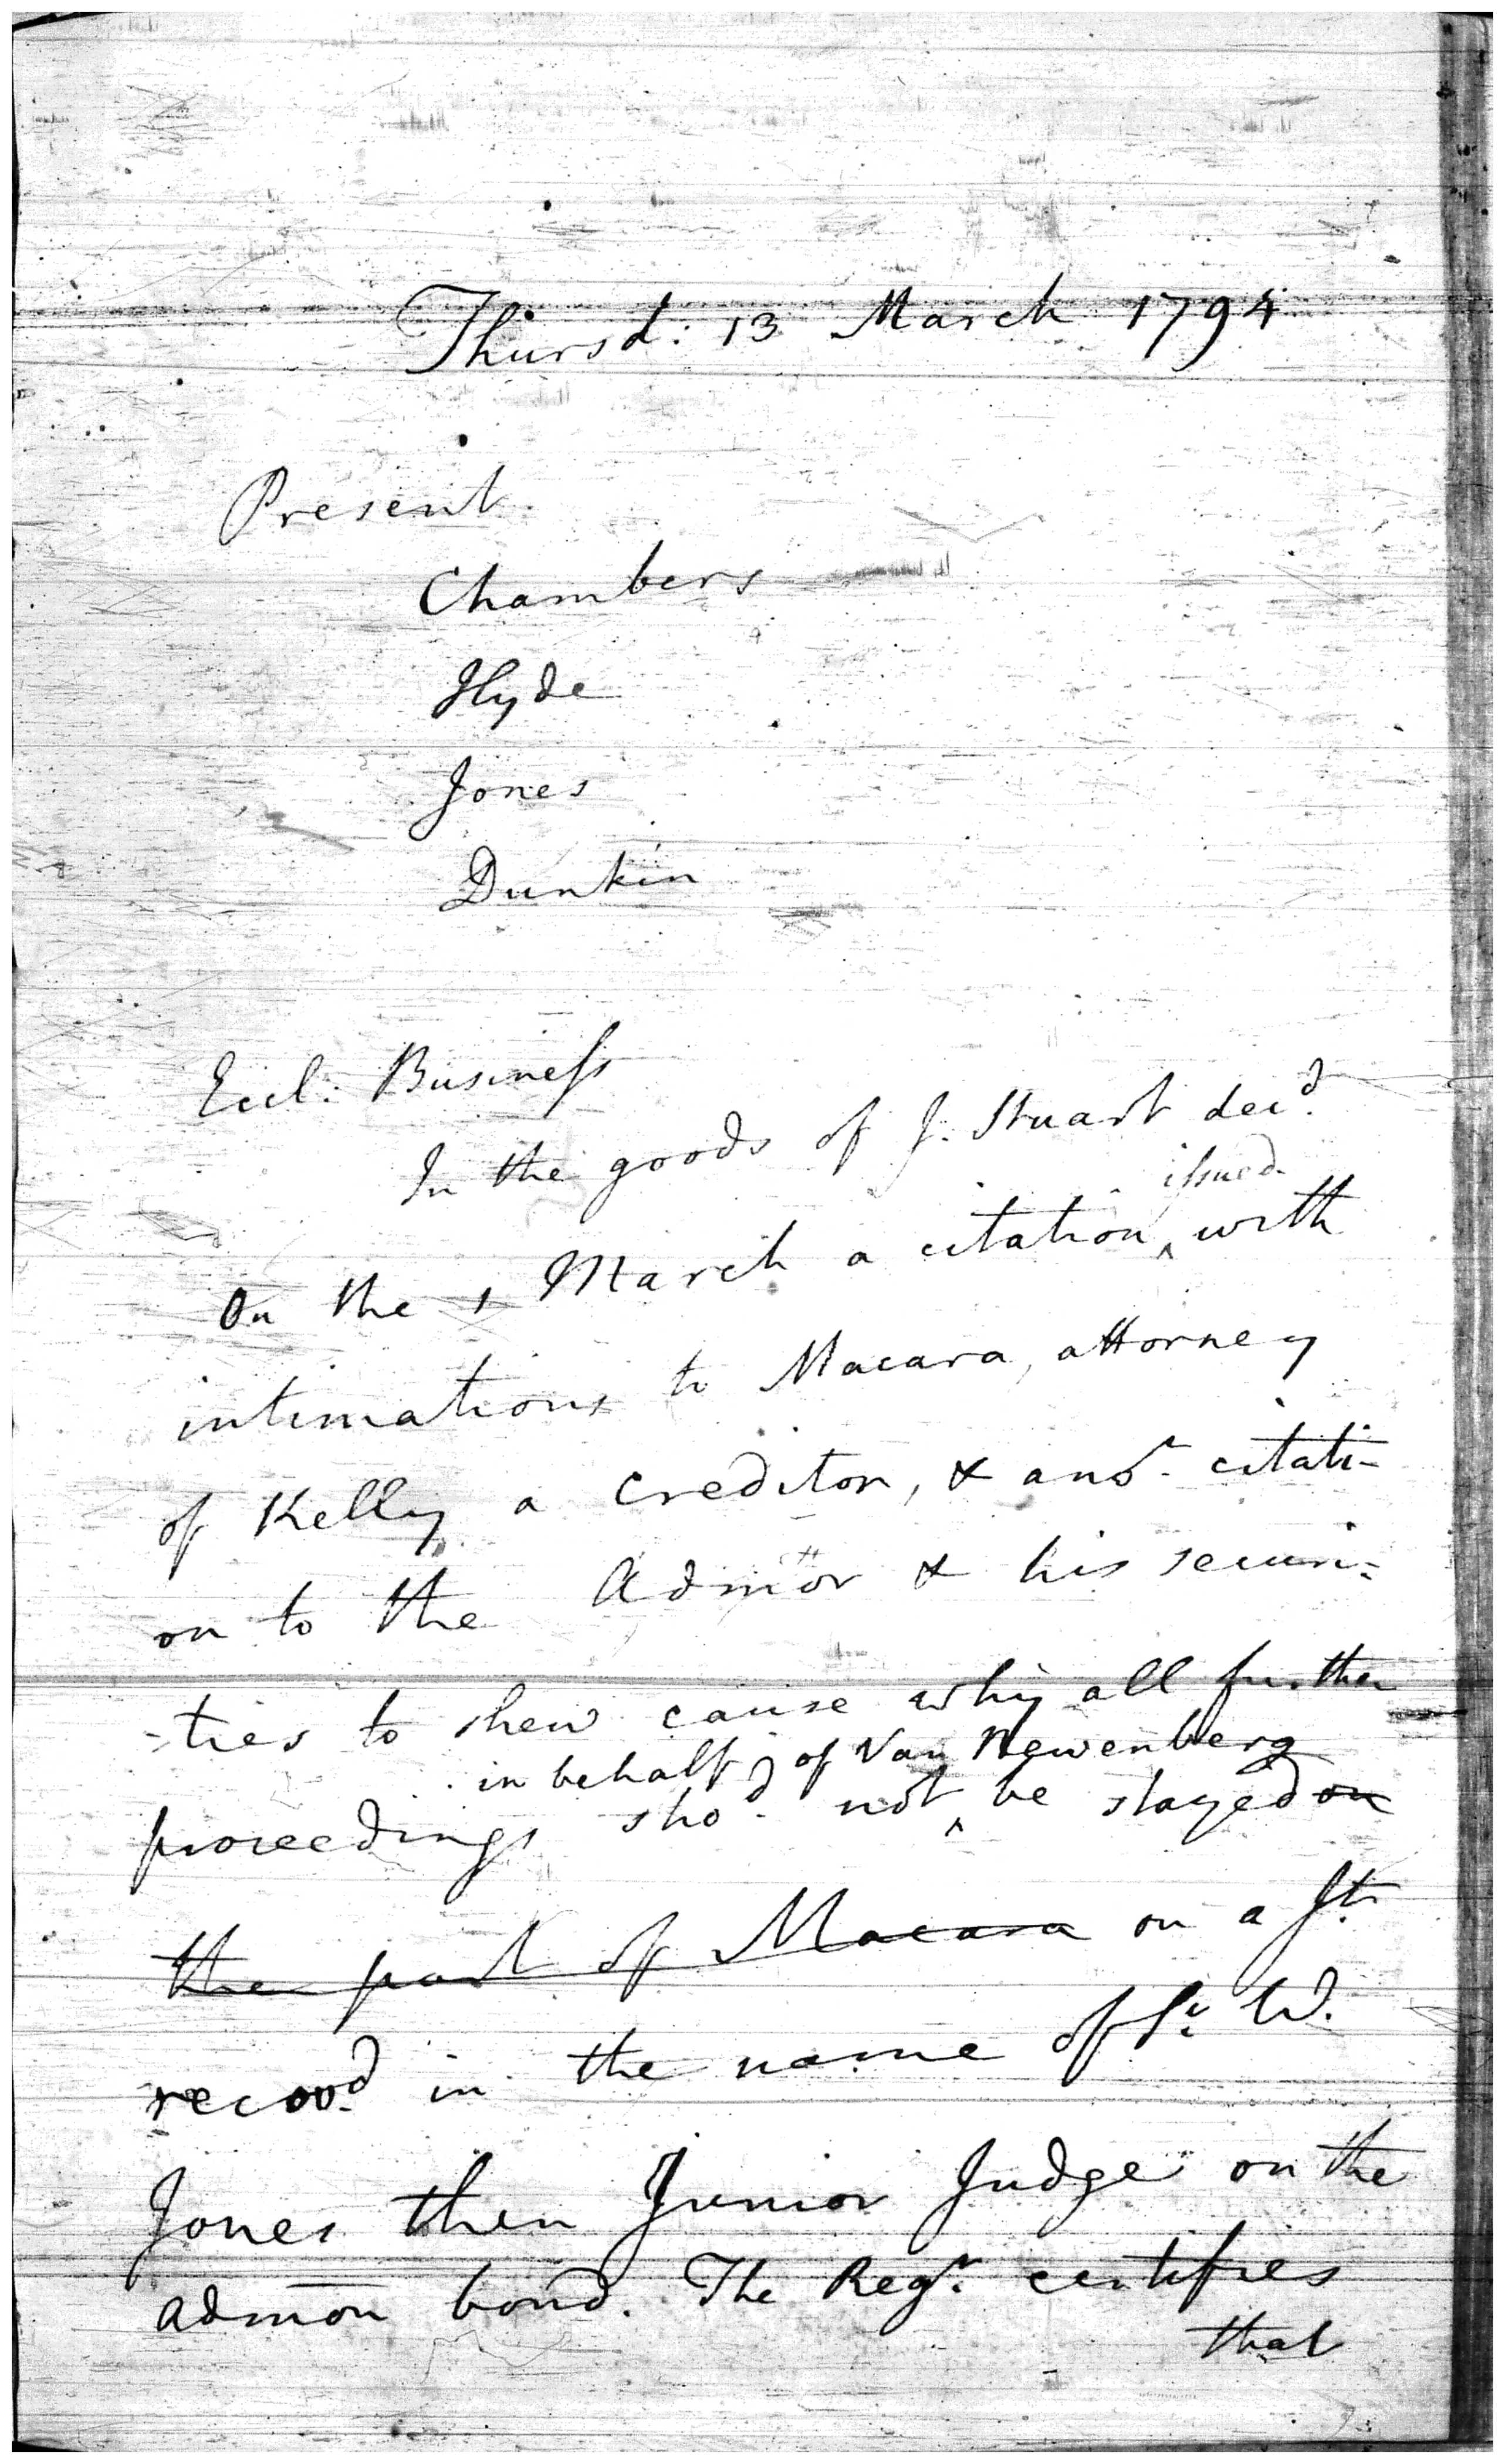 Thursd: 13 March 1794
Present.
Chambers
Hyde
Jones
Dunkin
Eccl: Business
In the goods of J. Stuart decd.
issued
On the 1 March a citation ^ with
intimations to Macara, attorney
of Kelly a creditor, & anor. citati-
on to the Admor & his securi=
=ties to shew cause why all further
in behalf of Van Newenberg
proceedings shod. not ^ be stayed on
the part of Macara on a Jt.
recovd. in the name of Sr. W.
Jones then Junior Judge on the
admon bond. The Regr. certifies
that